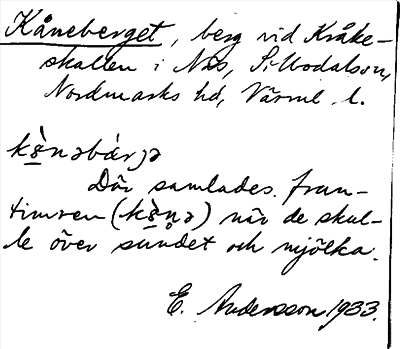 Kåneberget, berg vid Kråke-
skallen i Näs, S. Modalson,
Nordmarks hd, Värml. l.
kè̱nəbárjə
Där samlades frun-
timren (kè̱nə) när de skul-
le över sundet och mjölka.
E. Andersson 1933.